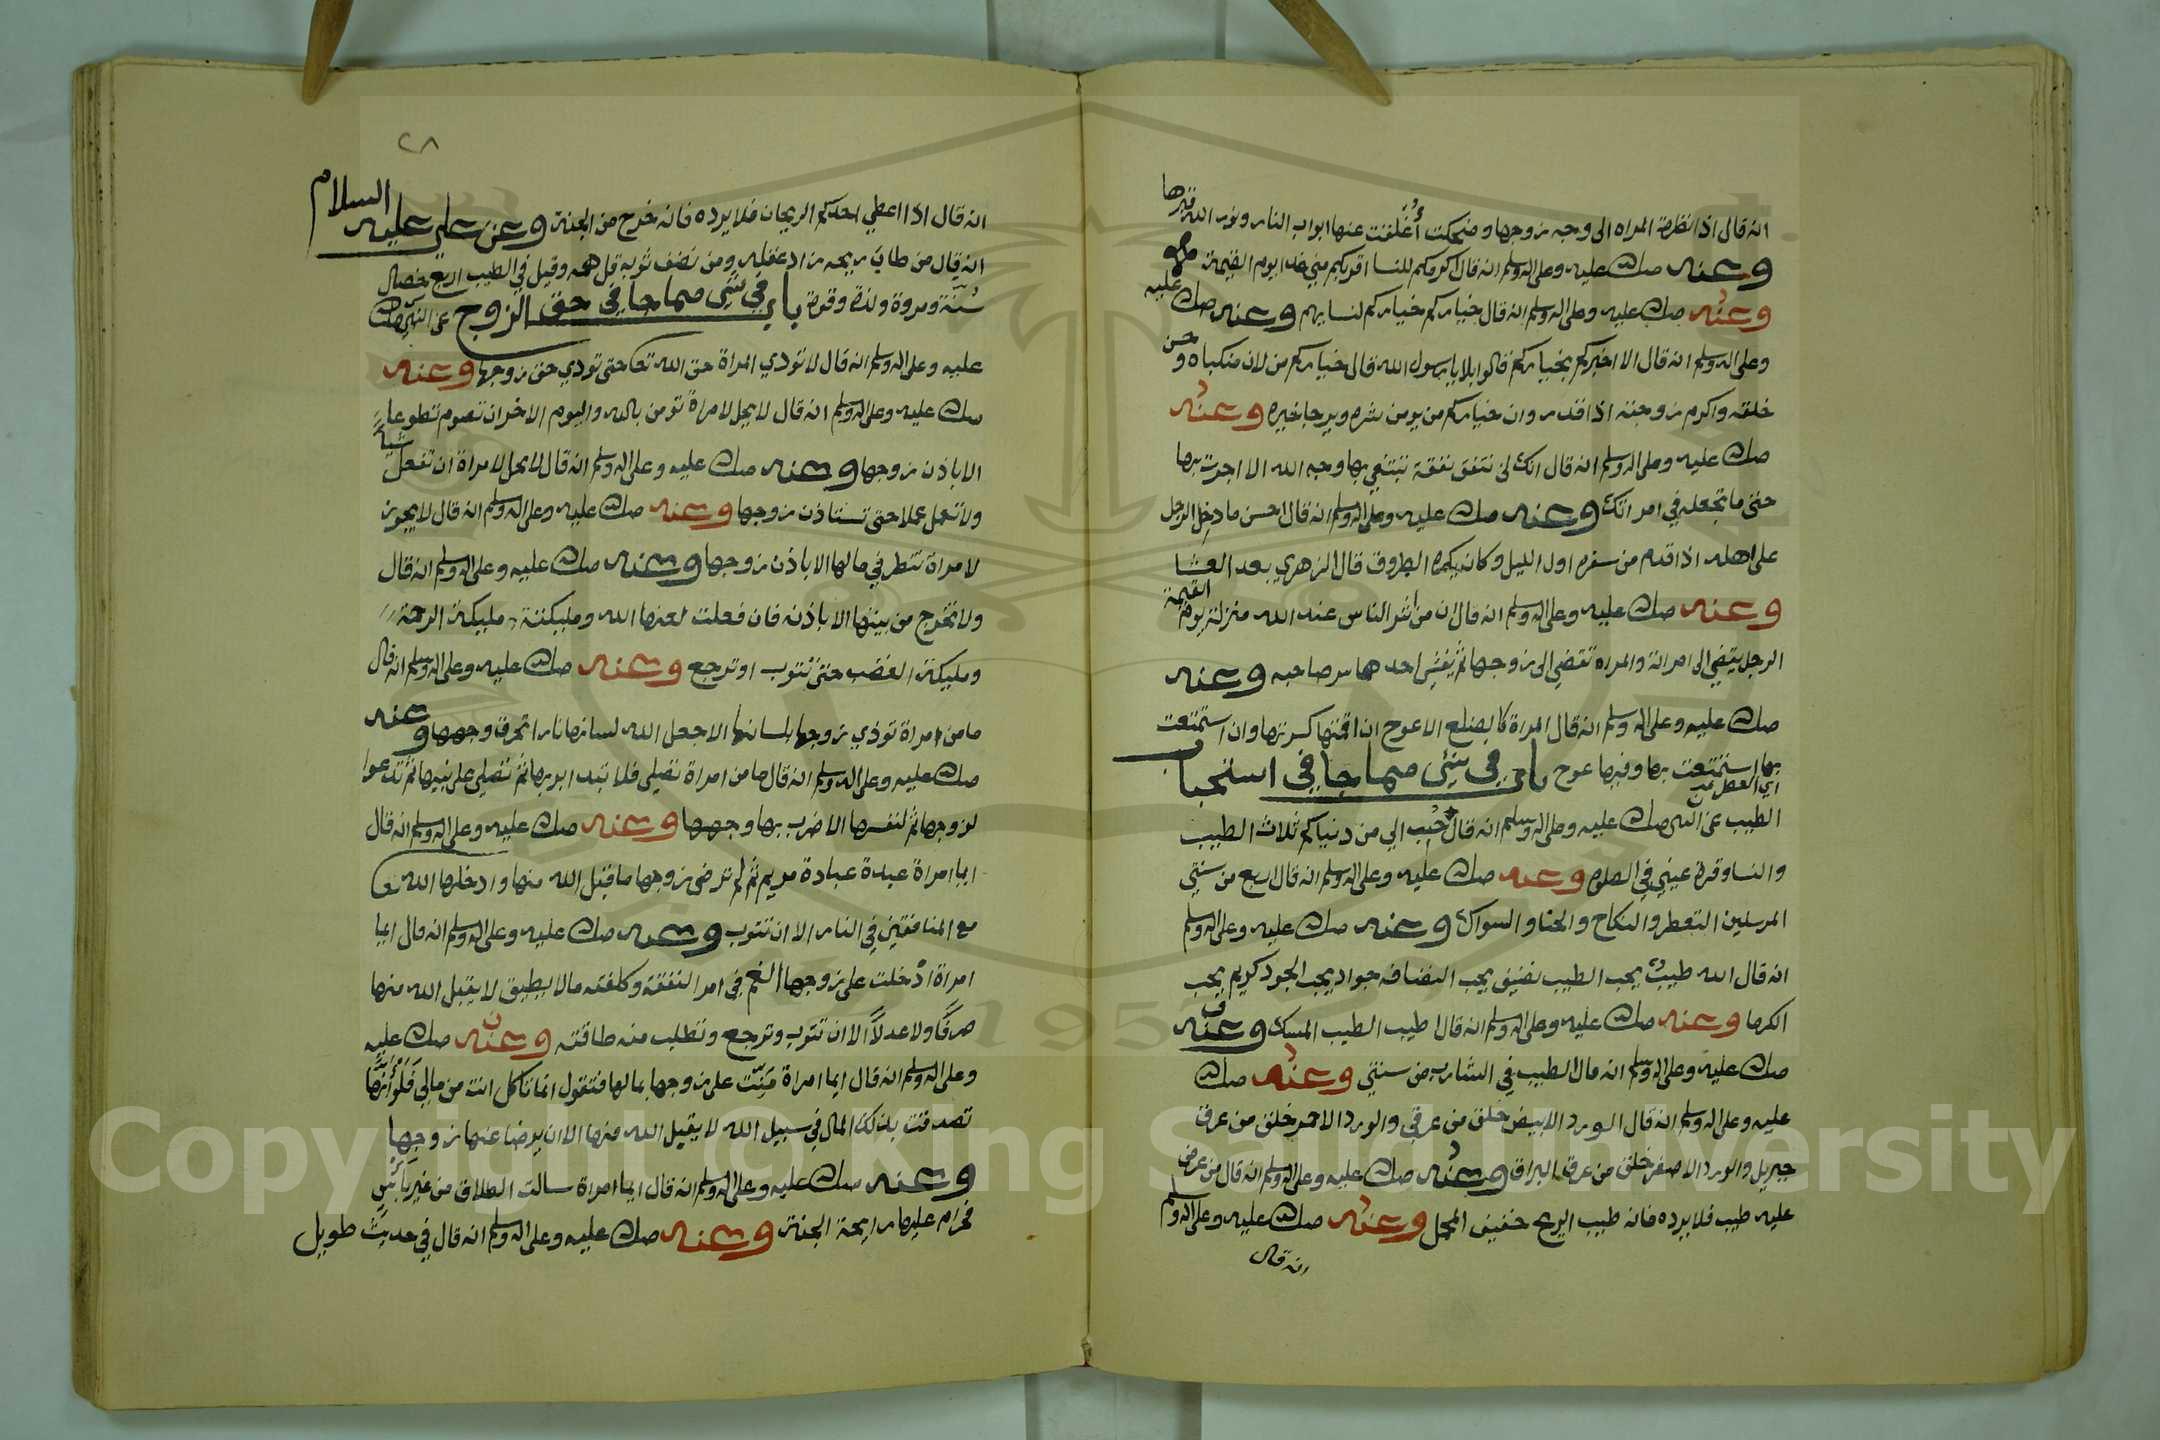 انه قال اذا نظرت المراه الى وجه زوجها وضحكت أُغْلقت عنها ابواب النار ونور الله قبرها
وعنه صلى الله عليه وعلى اله وسلم انه قال اكرمكم للنسا اقربكم مني غدا يوم القيمة
وعنه صلى الله عليه وعلى اله وسلم انه قال خياركم خياركم لنسايهم وعنه صلى الله عليه
وعلى اله وسلم انه قال الا اخبركم بخياركم قالوا بلا يا رسول الله قال خياركم من لان منكباه وحسن
خلقه واكرم زوجته اذا قدر وان خياركم من يومن شره ويرجا خيره وعنه
صلى الله عليه وعلى اله وسلم انه قال انك لن تنفق نفقة تبتغي بها وجه الله الا اجرت بها
حتى ما تجعله في امراتك وعنه صلى الله عليه وعلى اله وسلم انه قال احسن ما دخل الرجل
على اهله اذا قدم من سفره اول الليل وكان يكره الطروق قال الزهري بعد العشا
وعنه صلى الله عليه وعلى اله وسلم انه قال ان من اشر الناس عند الله منزلة يوم القيمة
الرجل يفضي الى امراته والمراه تفضي الى زوجها ثم يفشي احدهما سر صاحبه وعنه
صلى الله عليه وعلى اله وسلم انه قال المراة كالضلع الاعوج ان اقمتها كسرتها وان استمتعت
بها استمتعت بها وفيها عوج باب في شي مما جا في استحباب
الطيب عن النبي صلى الله عليه وعلى اله وسلم انه قال حُبب الي من دنياكم ثلاث الطيب
والنسا وقرة عيني في الصلوة وعنه صلى الله عليه وعلى اله وسلم انه قال اربع من سنتي
المرسلين التعطر والنكاح والحنا والسواك وعنه صلى الله عليه وعلى اله وسلم
انه قال الله طيبٌ يحب الطيب نضيف يحب النضافه جواد يحب الجود كريم يحب
الكرما وعنه صلى الله عليه وعلى اله وسلم انه قال اطيب الطيب المسك وعنه
صلى الله عليه وعلى اله وسلم انه قال الطيب في الشارب من سنتي وعنه صلى الله
عليه وعلى اله وسلم انه قال الورد الابيض خلق من عرقي والورد الاحمر خلق من عرق
جبريل والورد الاصفر خلق من عرق البراق وعنه صلى الله عليه وعلى اله وسلم انه قال من عرض
عليه طيب فلا يرده فانه طيب الريح خفيف المحمل وعنه صلى الله عليه وعلى اله وسلم
انه قال
٢٨
انه قال اذا اعطي احدكم الريحان فلا يرده فانه خرج من الجنة وعن علي عليه السلام
انه قال من طاب ريحه زاد عقله ومن نضف ثوبه قل همه وقيل في الطيب اربع خصال
سُنّة ومروة ولذة وقوة باب في شي مما جا في حق الزوج عن النبي صلى الله
عليه وعلى اله وسلم انه قال لا تودي المراة حق الله تعا حتى تودي حق زوجها وعنه
صلى الله عليه وعلى اله وسلم انه قال لا يحل لامراة تومن بالله واليوم الاخر ان تصوم تطوعا
الا باذن زوجها وعنه صلى الله عليه وعلى اله وسلم انه قال لا يحل لامراة ان تفعل شياً
ولا تعمل عملا حتى تستاذن زوجها وعنه صلى الله عليه وعلى اله وسلم انه قال لا يجوز
لامراة تنظر في مالها الا باذن زوجها وعنه صلى الله عليه وعلى اله وسلم انه قال
ولا تخرج من بيتها الا باذنه فان فعلت لعنها الله ومليكته مليكة الرحمة
ومليكة الغضب حتى تتوب او ترجع وعنه صلى الله عليه وعلى اله وسلم انه قال
ما من امراة توذي زوجها بلسانها الا جعل الله لسانها نارا تحرق وجهها وعنه
صلى الله عليه وعلى اله وسلم انه قال ما من امراة تصلي فلا تبدا بربها ثم تصلي على نبيها ثم تدعوا
لزوجها ثم لنفسها الا ضرب بها وجهها وعنه صلى الله عليه وعلى اله وسلم انه قال
ايما امراة عبدة عبادة مريم ثم لم ترضي زوجها ما قبل الله منها وادخلها الله تعا
مع المنافقين في النار الا ان تتوب وعنه صلى الله عليه وعلى اله وسلم انه قال ايما
امراة ادخلت على زوجها الغم في امر النفقة وكلفته ما لا يطيق لا يقبل الله منها
صرفًا ولا عدلاً الا ان تتوب وترجع وتطلب منه طاقته وعنه صلى الله عليه
وعلى اله وسلم انه قال ايما امراة مَنّت على زوجها بمالها فتقول انما تاكل انت من مالي فَلَوْ أنها
تصدقت بذلك المال في سبيل الله لا يقبل الله منها الا ان يرضا عنها زوجها
وعنه صلى الله عليه وعلى اله وسلم انه قال ايما امراة سالت الطلاق من غير باس
فحرام عليها رايحة الجنة وعنه صلى الله عليه وعلى اله وسلم انه قال في حديث طويل
Copyright © King Saud University
1957